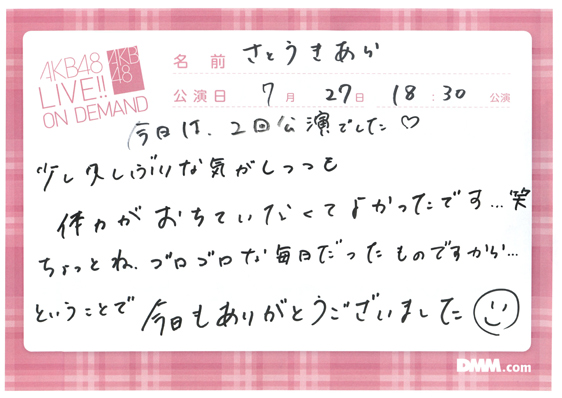 AKB48
LIVE!!
ON DEMAND
AKB
48
名前 さとうきあら
公演日 7月27日 18:30 公演
今日は、2回公演でした♡
少し久しぶりな気がしつつも
体力がおちていなくてよかったです…笑
ちょっとね、ゴロゴロな毎日だったものですから…
ということで 今日もありがとうございました
DMM.com